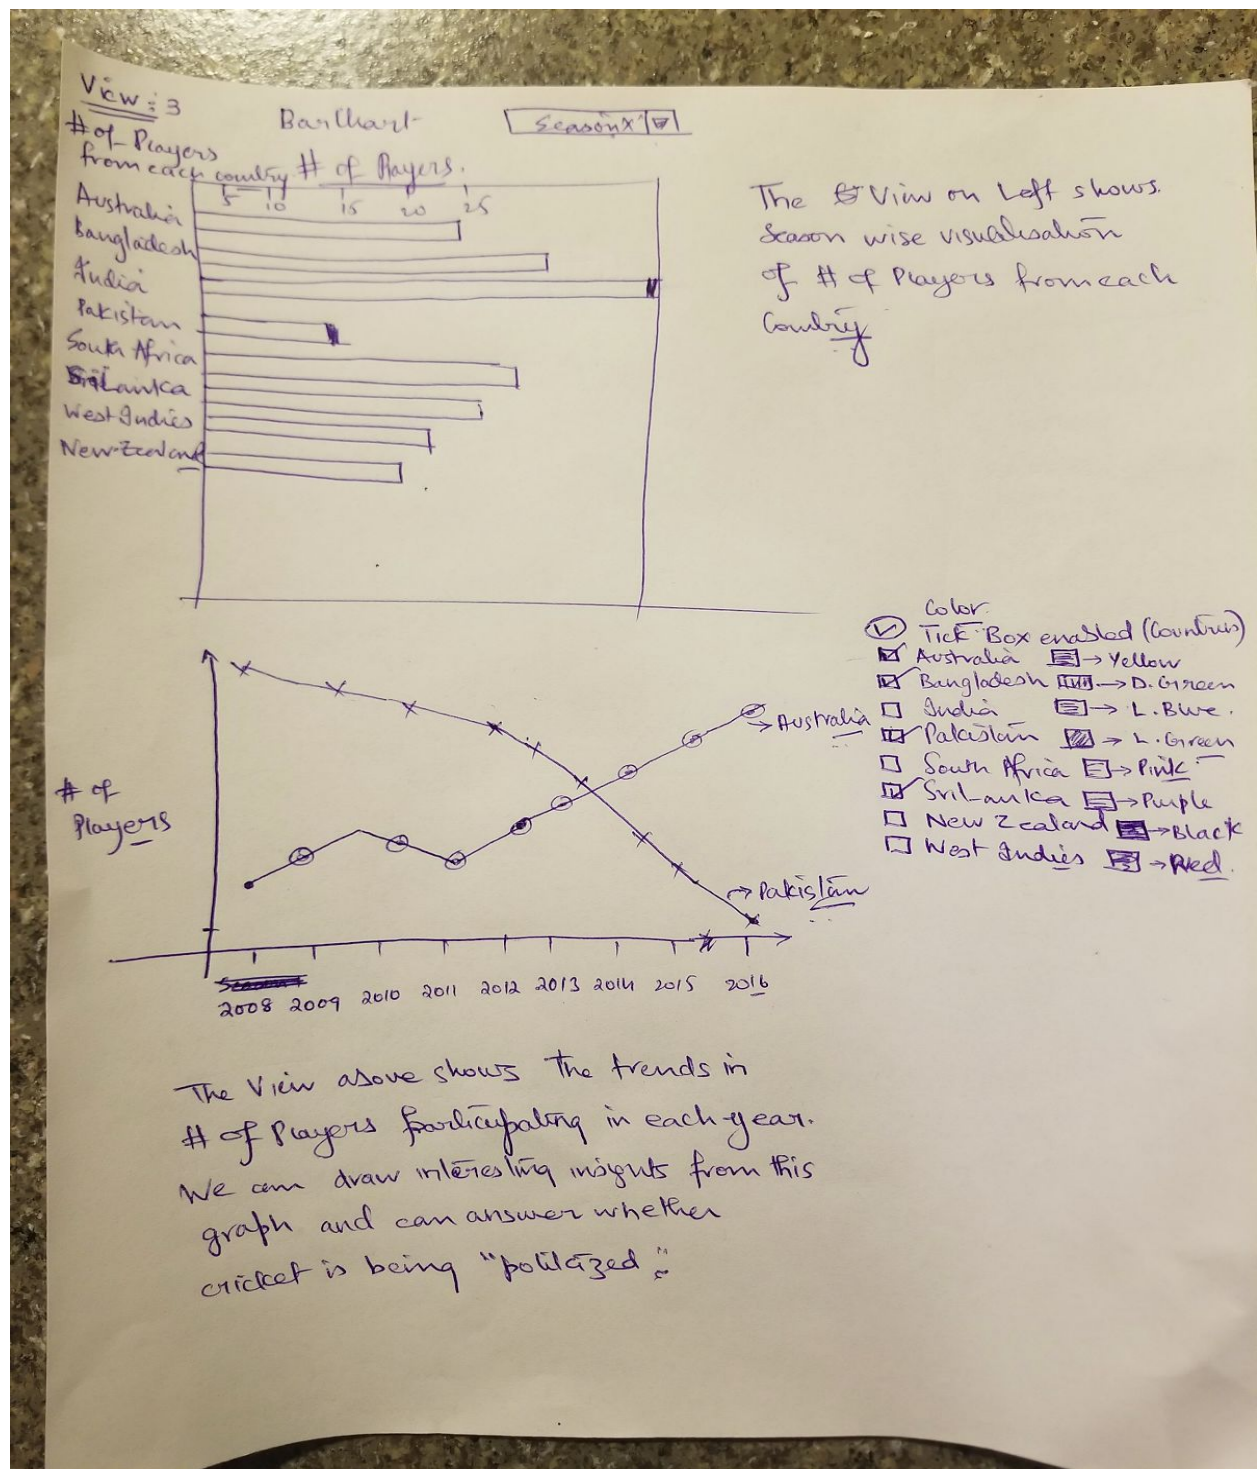 View : 3
# of Players
from each country
BarChart
Season X
# of Players.
5 10 15 20 25
Australia
Bangladesh
India
Pakistan
South Africa
SriLanka
West Indies
New Zealand
The View on Left shows
Season wise visualisation
of # of Players from each
Country
Color
Tick Box enabled (Countries)
Australia → Yellow
Bangladesh → D. Green
India → L. Blue.
Pakistan → L. Green
South Africa → Pink
SriLanka → Purple
New Zealand → Black
West Indies → Red.
# of
Players
Australia
Pakistan
2008 2009 2010 2011 2012 2013 2014 2015 2016
The View above shows the trends in
# of Players participating in each year.
We can draw interesting insights from this
graph and can answer whether
cricket is being "politicized".